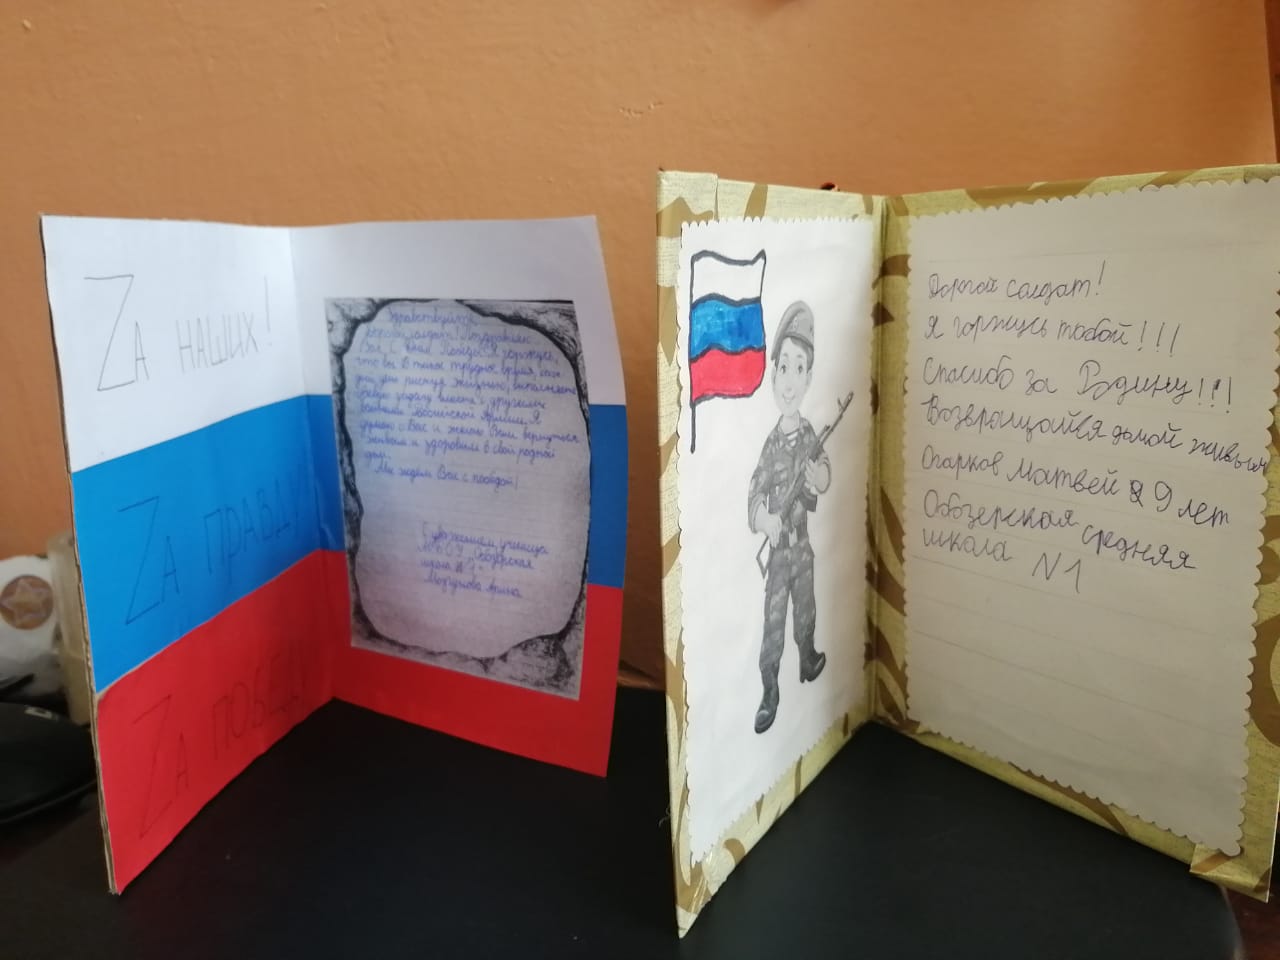 Zа наших!
Zа правду
Zа победу
Здравствуйте,
дорогой солдат! Поздравляю
Вас с Днём Победы. Я горжусь,
что вы в такое трудное время, каж-
дый день рискуя жизнью, выполняете
боевую задачу вместе с другими
воинами Российской Армии. Я
думаю о Вас и желаю Вам вернуться
живым и здоровым в свой родной
дом.
Мы ждём Вас с победой!
С уважением, ученица
МБОУ "Обозерская
школа № 1"
Арина
Дорогой солдат!
Я горжусь тобой!!!
Спасибо за Родину!!!
Возвращайся домой живым
Огарков Матвей 9 лет
Обозерская средняя
школа N1